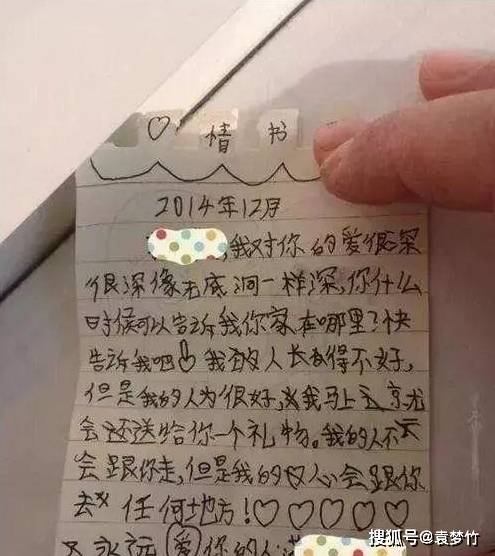 ♡ 情书
2014年12月
,我对你的爱很深
很深像无底洞一样深,你什么
时候可以告诉我你家在哪里?快
告诉我吧 我的人长得不好,
但是我的人为很好,我马上
会还送给你一个礼物。我的人不
会跟你走,但是我的心会跟你
去 任何地方!♡♡♡♡♡
永远 爱 你的人:
搜狐号@袁梦竹